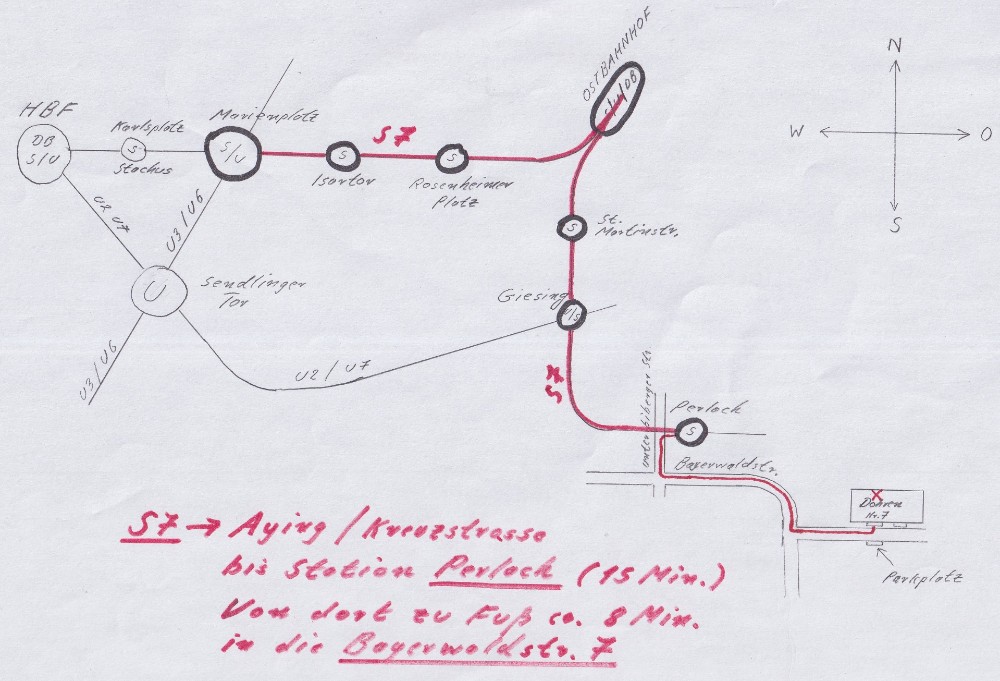 OSTBAHNHOF
S/U/DB
N
W
O
S
HBF
DB
S/U
Karlsplatz
S
Stachus
Marienplatz
S/U
S7
S
Isartor
S
Rosenheimer
Platz
S
St.
Martinstr.
U2 U7
U3/U6
U
Sendlinger
Tor
Giesing
U/S
U3/U6
U2/U7
S7
Unterbiberger Str
Perlach
S
Bayerwaldstr.
Dohren
Nr. 7
Parkplatz
S7 → Aying/Kreuzstrasse
bis Station Perlach (15 Min.)
Von dort zu Fuß ca. 8 Min.
in die Bayerwaldstr. 7